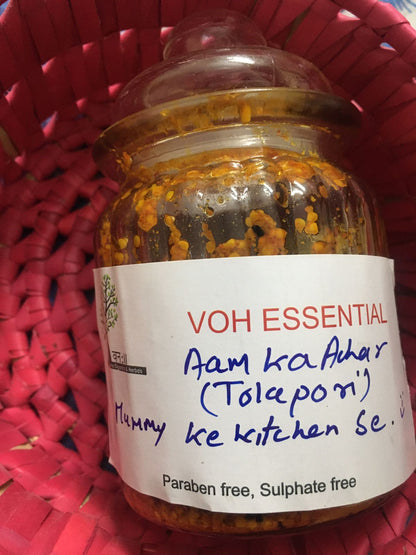 VOH ESSENTIAL
Aam ka Achar
(Tolapori)
Mummy ke kitchen se.
Paraben free, Sulphate free